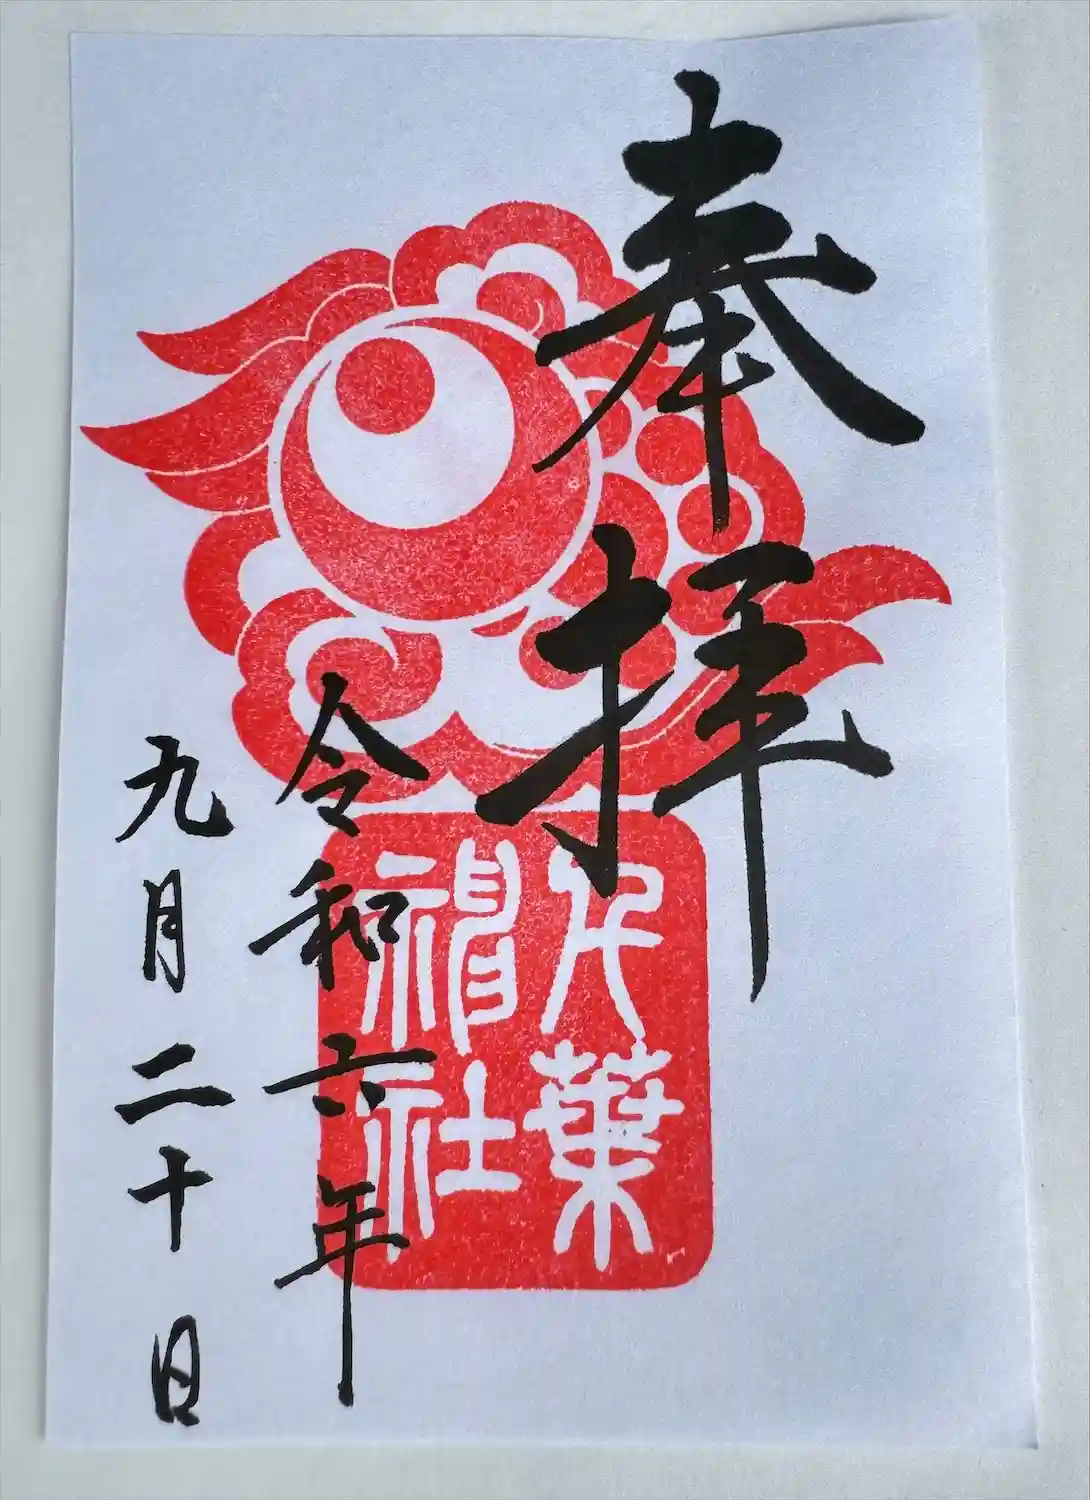 奉拝
千葉
神社
令和六年
九月二十日